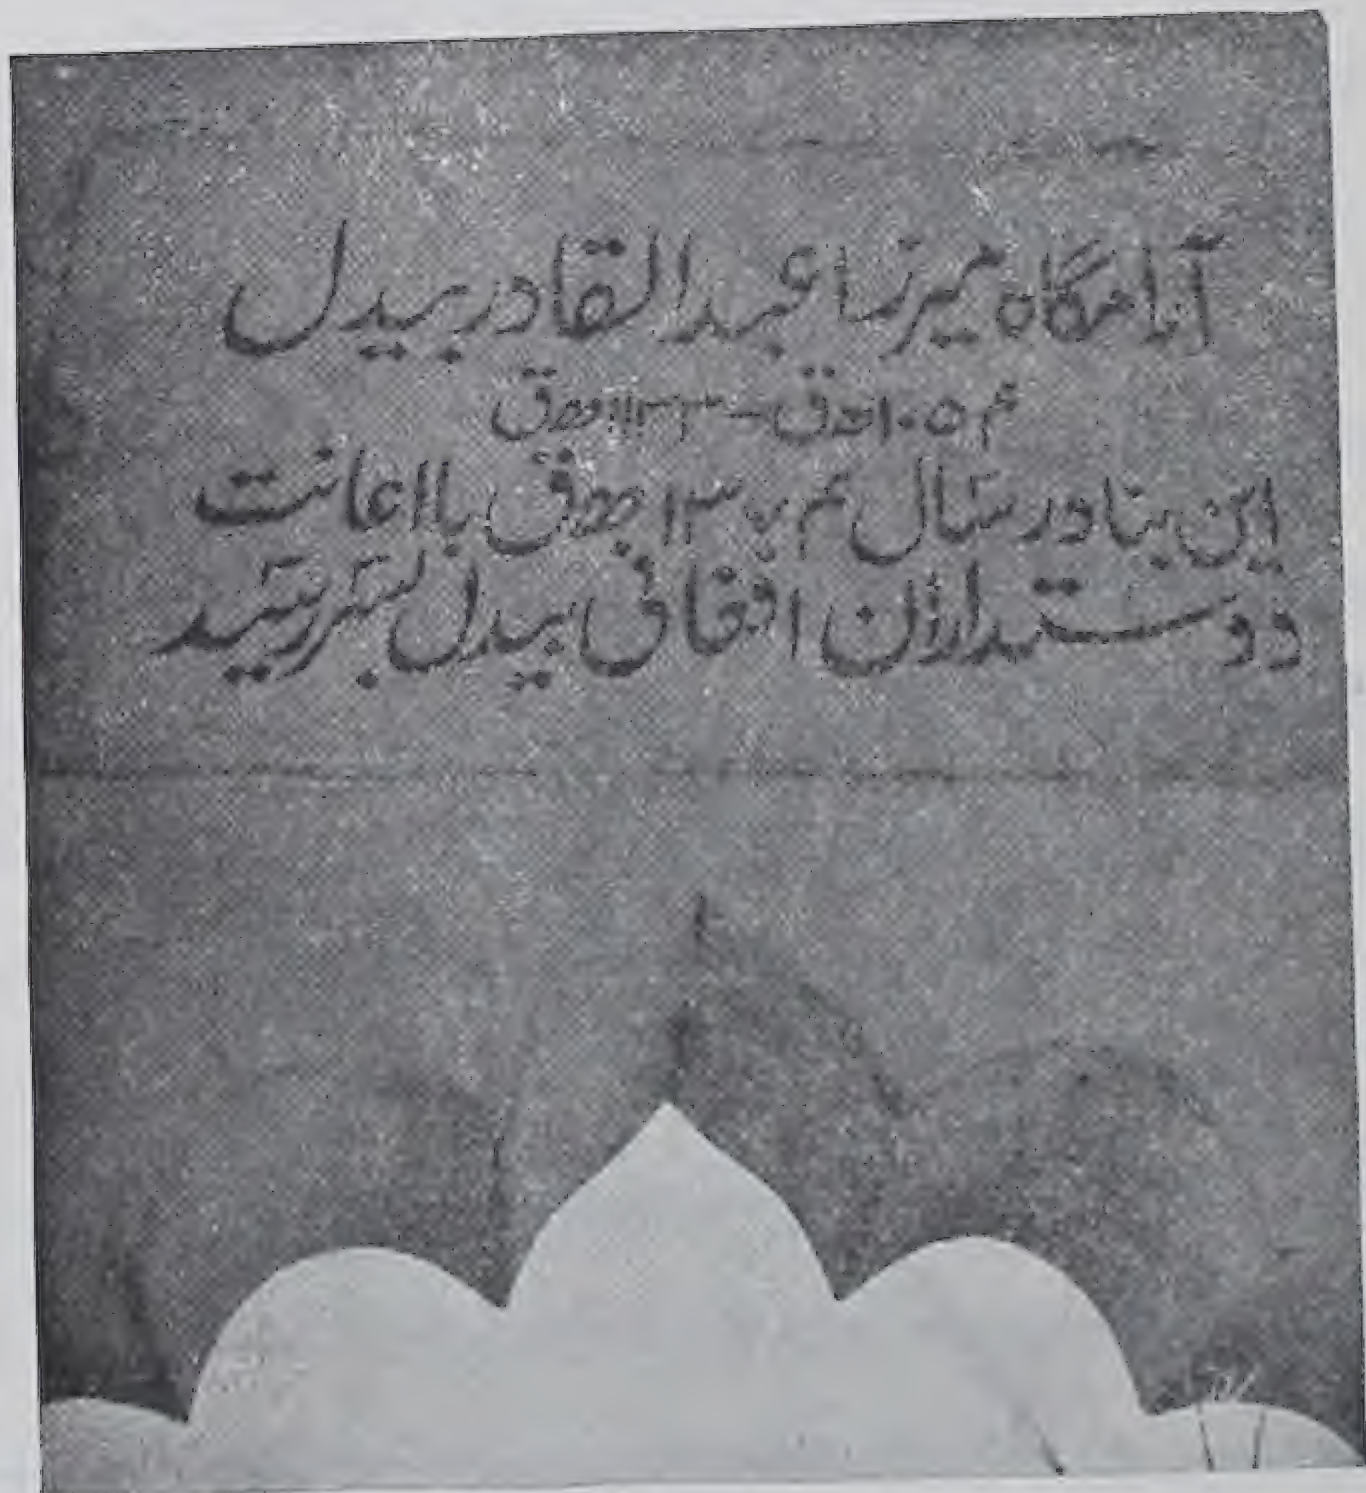 آرامگاه میرزا عبدالقادر بیدل
۱۰۵۴ھق - ۱۱۳۳ھق
این بنا در سال ۱۳۷۴ ھق با اعانت
دوستداران افغانی بیدل بسر رسید